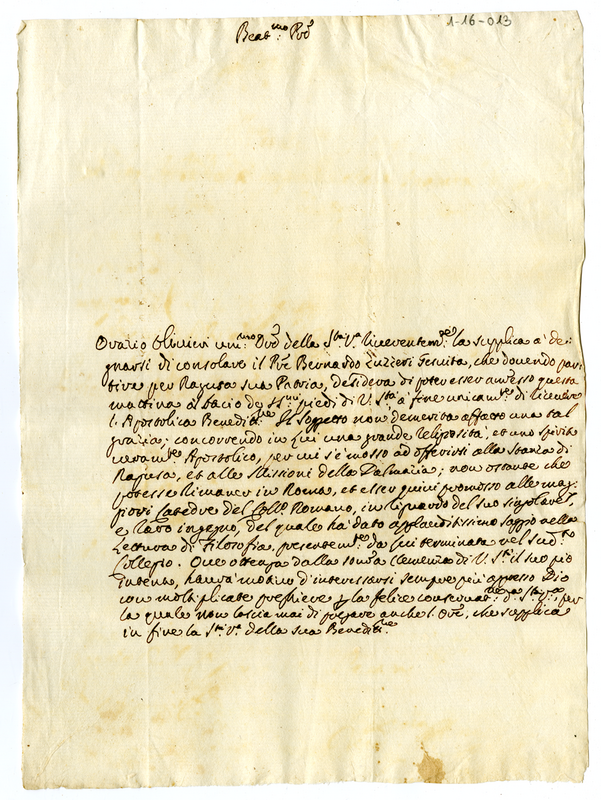 1-16-013
Beat.mo Pre
Orazio Olivieri um.mo Ore della S.tà V.a riverentem.te la supplica à de-
gnarsi di consolare il Pre Bernardo Zuzzeri Gesuita, che dovendo par-
tire per Ragusa sua Patria, desidera di poter esser amesso questa
mattina al bacio de SS.mi piedi di V. S.tà a fine unicam.te di ricevere
l'Apostolica Benediz.ne Il Soggetto non demerita affatto una tal
grazia; concorrendo in Lui una grande religiosità, et uno spirito
veram.te Apostolico, per cui s'è mosso ad offerirsi alla Stanza di
Ragusa, et alle Missioni della Dalmazia; non ostante che
potesse rimaner in Roma, et esser quivi promosso alle mag-
giori Catedre del Coll.o Romano, in riguardo del suo singolare,
e raro ingegno, del quale ha dato applauditissimo saggio nella
Lettura di Filosofia, presentem.te da lui terminata nel sud.to
Collegio. Che ottenga dalla somma Clemenza di V. S.tà il suo pio
intento, haverà motivo d'interessarsi sempre più appresso Dio
con moltiplicate preghiere p la felice conservaz.ne d. S.tà V.a, per
la quale non lascia mai di pregare anche l'Ore, che supplica
in fine la S.tà V.a della sua Benediz.ne